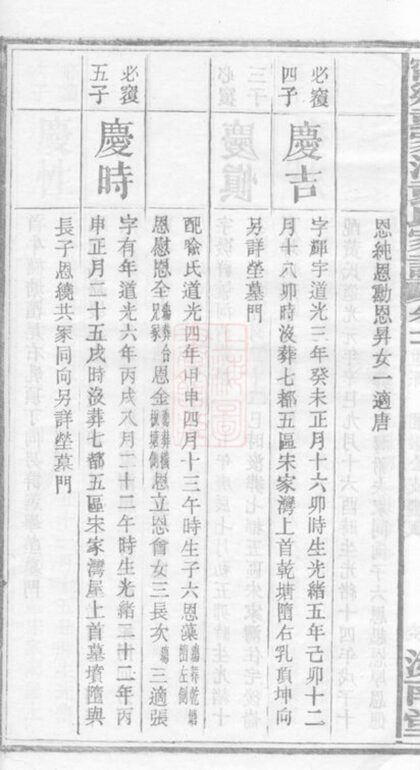 恩純恩勳恩昇女一適唐
必獲四子
慶吉
字輝宇道光三年癸未正月十六卯時生光緒五年己卯十二
月十八卯時沒葬七都五區宋家灣上首乾塘墮右乳頂坤向
另詳塋墓門
配喻氏道光四年甲申四月十三午時生子六恩藻
恩慰恩全恩金恩立恩會女三長次殤三適張
必獲五子
慶時
字有年道光六年丙戌八月二十二午時生光緒三十二年丙
申正月二十五戌時沒葬七都五區宋家灣屋上首墓墳墮與
長子恩繞共冢同向另詳塋墓門